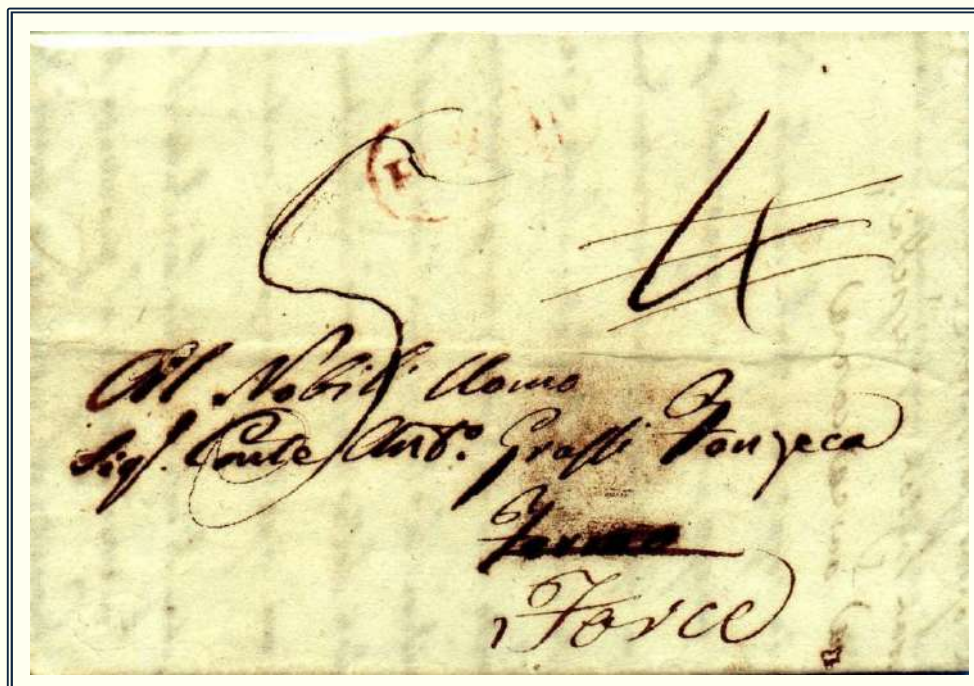 4
5
Al Nobil' Uomo
Sig.r Conte Ant.o Grassi Fonzeca
Fermo
Force